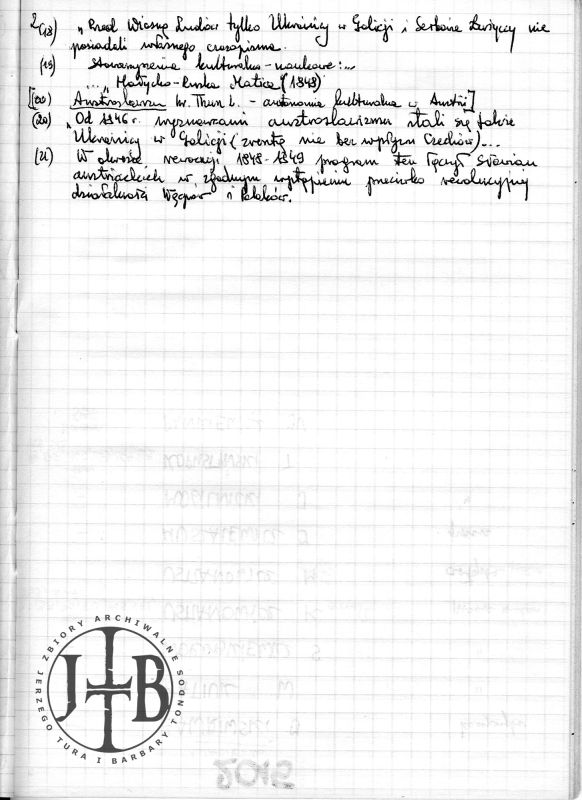 2(18) „Przed Wiosną Ludów tylko Ukraińcy w Galicji i Serbowie Łużyccy nie
posiadali własnego czasopisma.
(19) Stowarzyszenia kulturalno-naukowe:...
..." Halycko-Ruska Matica (1848)
[(20) Austroslawizm hr. Thun L. - autonomia kulturalna w Austrii]
(20) „Od 1846r. wyznawcami austroslawizmu stali się także
Ukraińcy w Galicji (zresztą nie bez wpływu Czechów)...
(21) W okresie rewolucji 1848-1849 program ten łączył Słowian
austriackich w zgodnym wystąpieniu przeciwko rewolucyjnej
działalności Węgrów i Polaków.
ZBIORY ARCHIWALNE
JERZEGO TURA I BARBARY TONDOS
J B